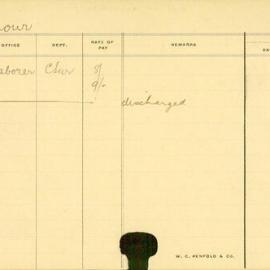 our
OFFICE DEPT. RATE OF PAY REMARKS
aborer 8/
9/-
discharged
W. C. PENFOLD & CO.